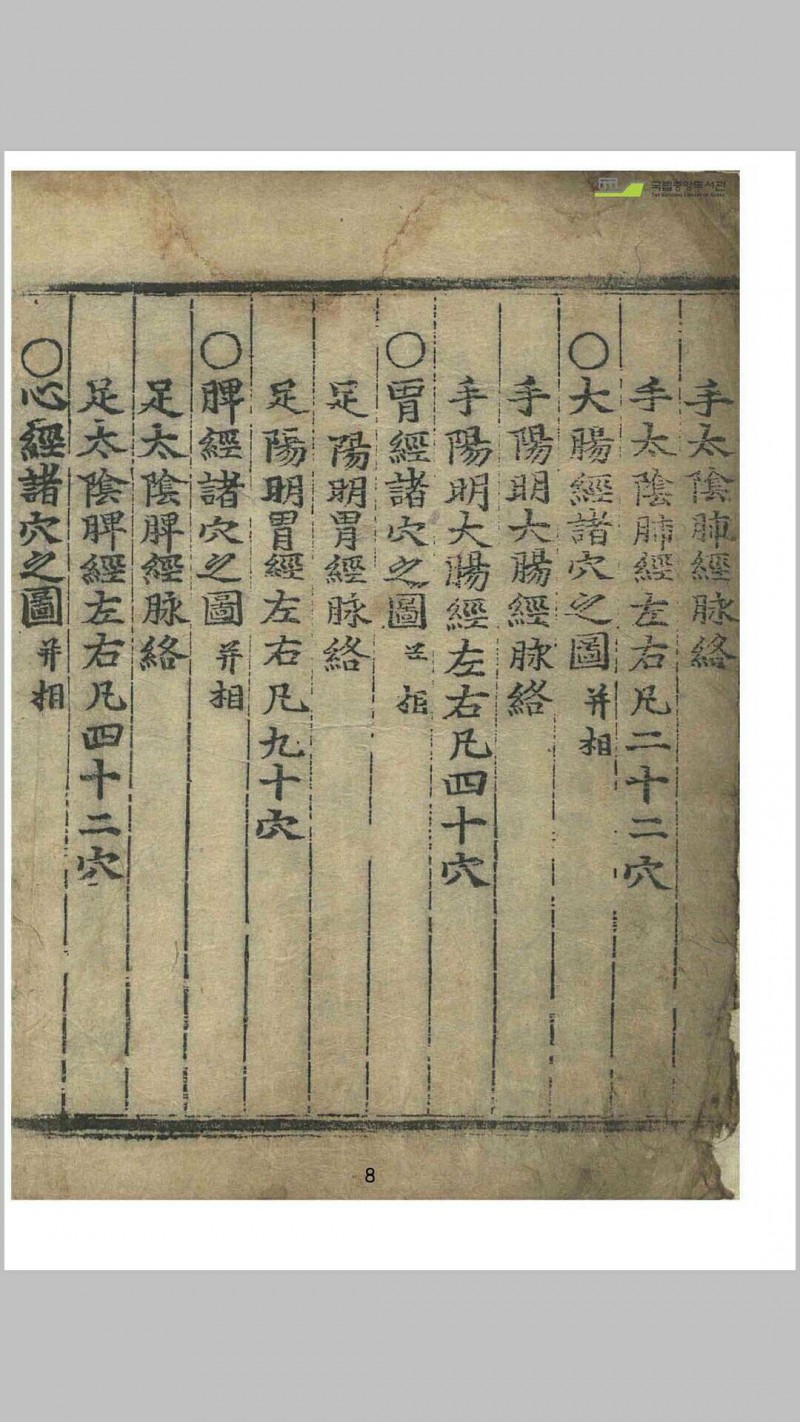 국립중앙도서관
THE NATIONAL LIBRARY OF KOREA
手太陰肺經脉絡
手太陰肺經左右凡二十二穴
○大腸經諸穴之圖 并相
手陽明大腸經脉絡
手陽明大腸經左右凡四十穴
○胃經諸穴之圖
足陽明胃經脉絡
足陽明胃經左右凡九十穴
○脾經諸穴之圖 并相
足太陰脾經脉絡
足太陰脾經左右凡四十二穴
○心經諸穴之圖 并相
8